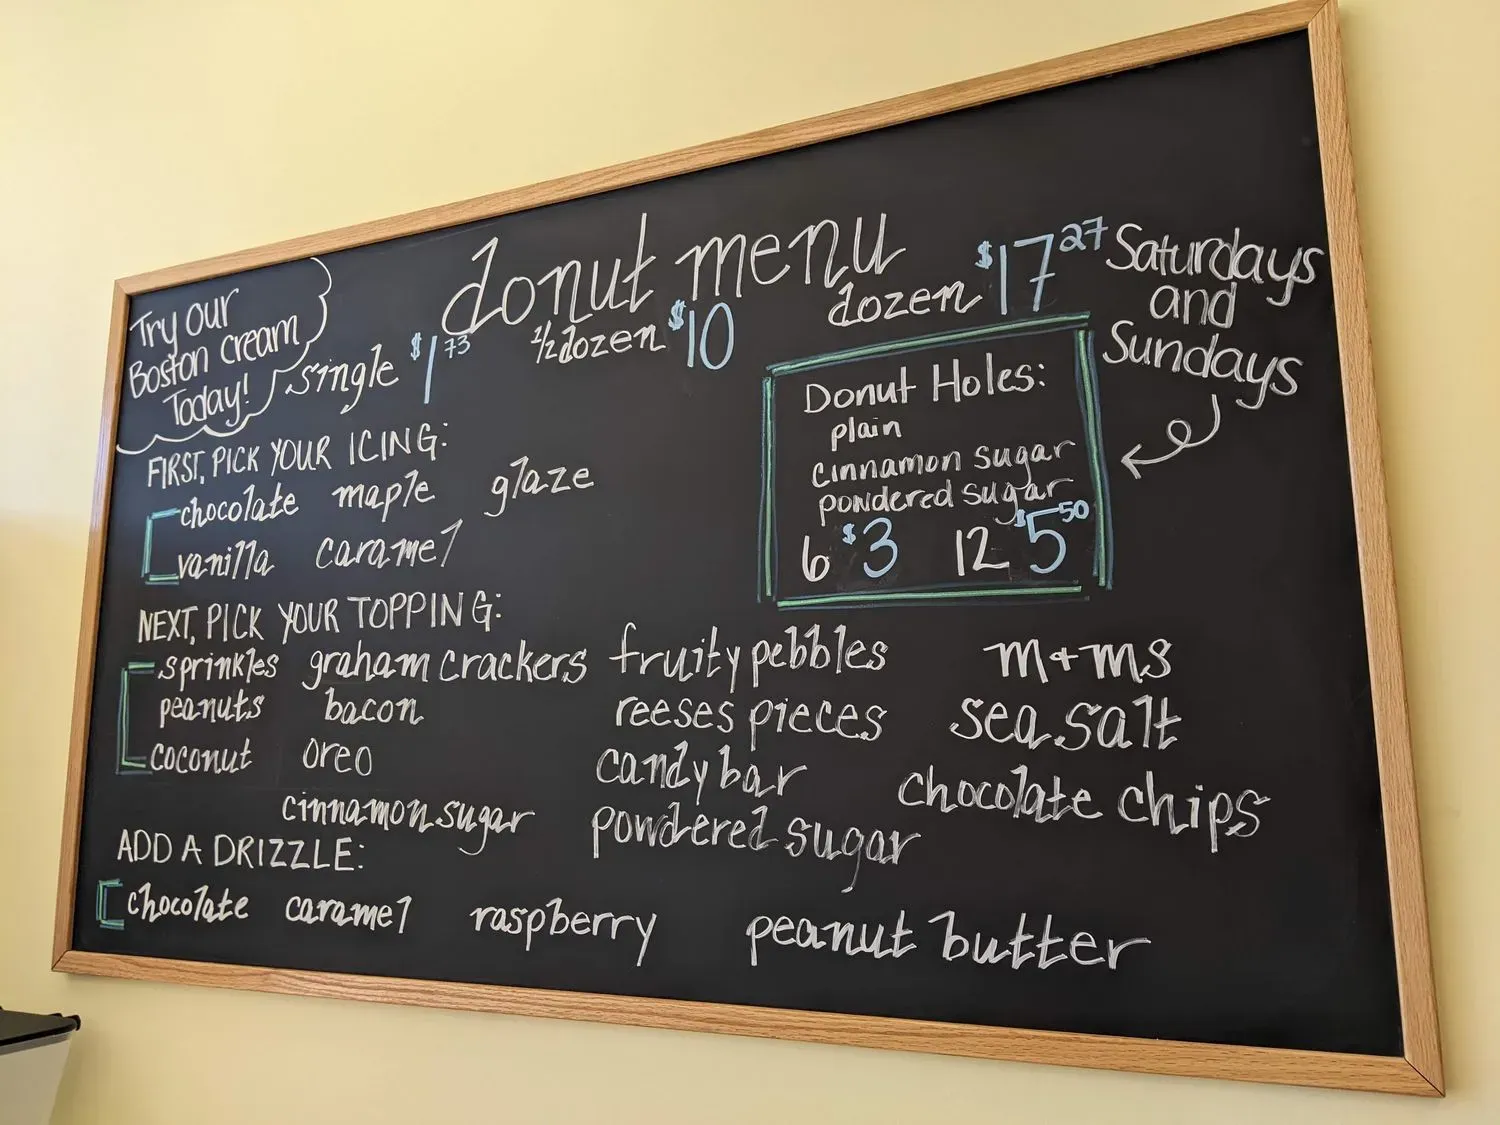 donut menu
Try our
Boston cream
Today!
single $1 73
1/2 dozen $10
dozen $17 27
Saturdays
and
Sundays
Donut Holes:
plain
cinnamon sugar
powdered sugar
6 $3 12 $5 50
FIRST, PICK YOUR ICING:
chocolate maple glaze
vanilla caramel
NEXT, PICK YOUR TOPPING:
sprinkles graham crackers fruity pebbles m+ms
peanuts bacon reeses pieces sea salt
coconut oreo candy bar chocolate chips
cinnamon sugar powdered sugar
ADD A DRIZZLE:
chocolate caramel raspberry peanut butter